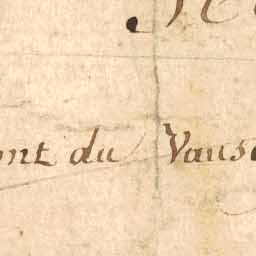 ont du Vaus